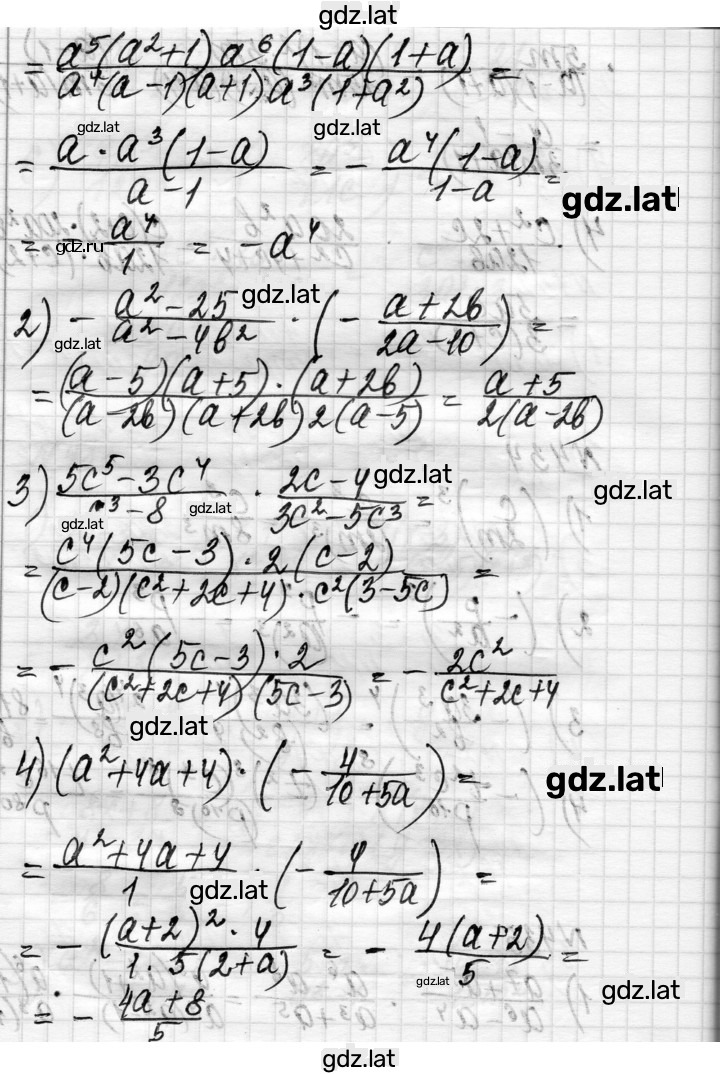 gdz.lat
= a⁵(a²+1) a⁶(1-a)(1+a) / a⁴(a-1)(a+1) a³(1+a²) =
gdz.lat gdz.lat
= a · a³(1-a) / a-1 = - a⁴(1-a) / 1-a =
gdz.lat
= gdz.ru - a⁴ / 1 = -a⁴
2) - a²-25 / a²-4b² · (- a+2b / 2a-10) =
gdz.lat gdz.lat
= (a-5)(a+5)·(a+2b) / (a-2b)(a+2b)2(a-5) = a+5 / 2(a-2b)
3) 5c⁵-3c⁴ / c³-8 · 2c-4 / 3c²-5c³ =
gdz.lat gdz.lat
gdz.lat gdz.lat
= c⁴(5c-3)·2(c-2) / (c-2)(c²+2c+4)·c²(3-5c) =
= - c²(5c-3)·2 / (c²+2c+4)(5c-3) = - 2c² / c²+2c+4
gdz.lat
4) (a²+4a+4)·(- 4 / 10+5a) =
gdz.lat
= a²+4a+4 / 1 · (- 4 / 10+5a) =
gdz.lat
= - (a+2)²·4 / 1·5(2+a) = - 4(a+2) / 5 =
gdz.lat gdz.lat
= - 4a+8 / 5
gdz.lat